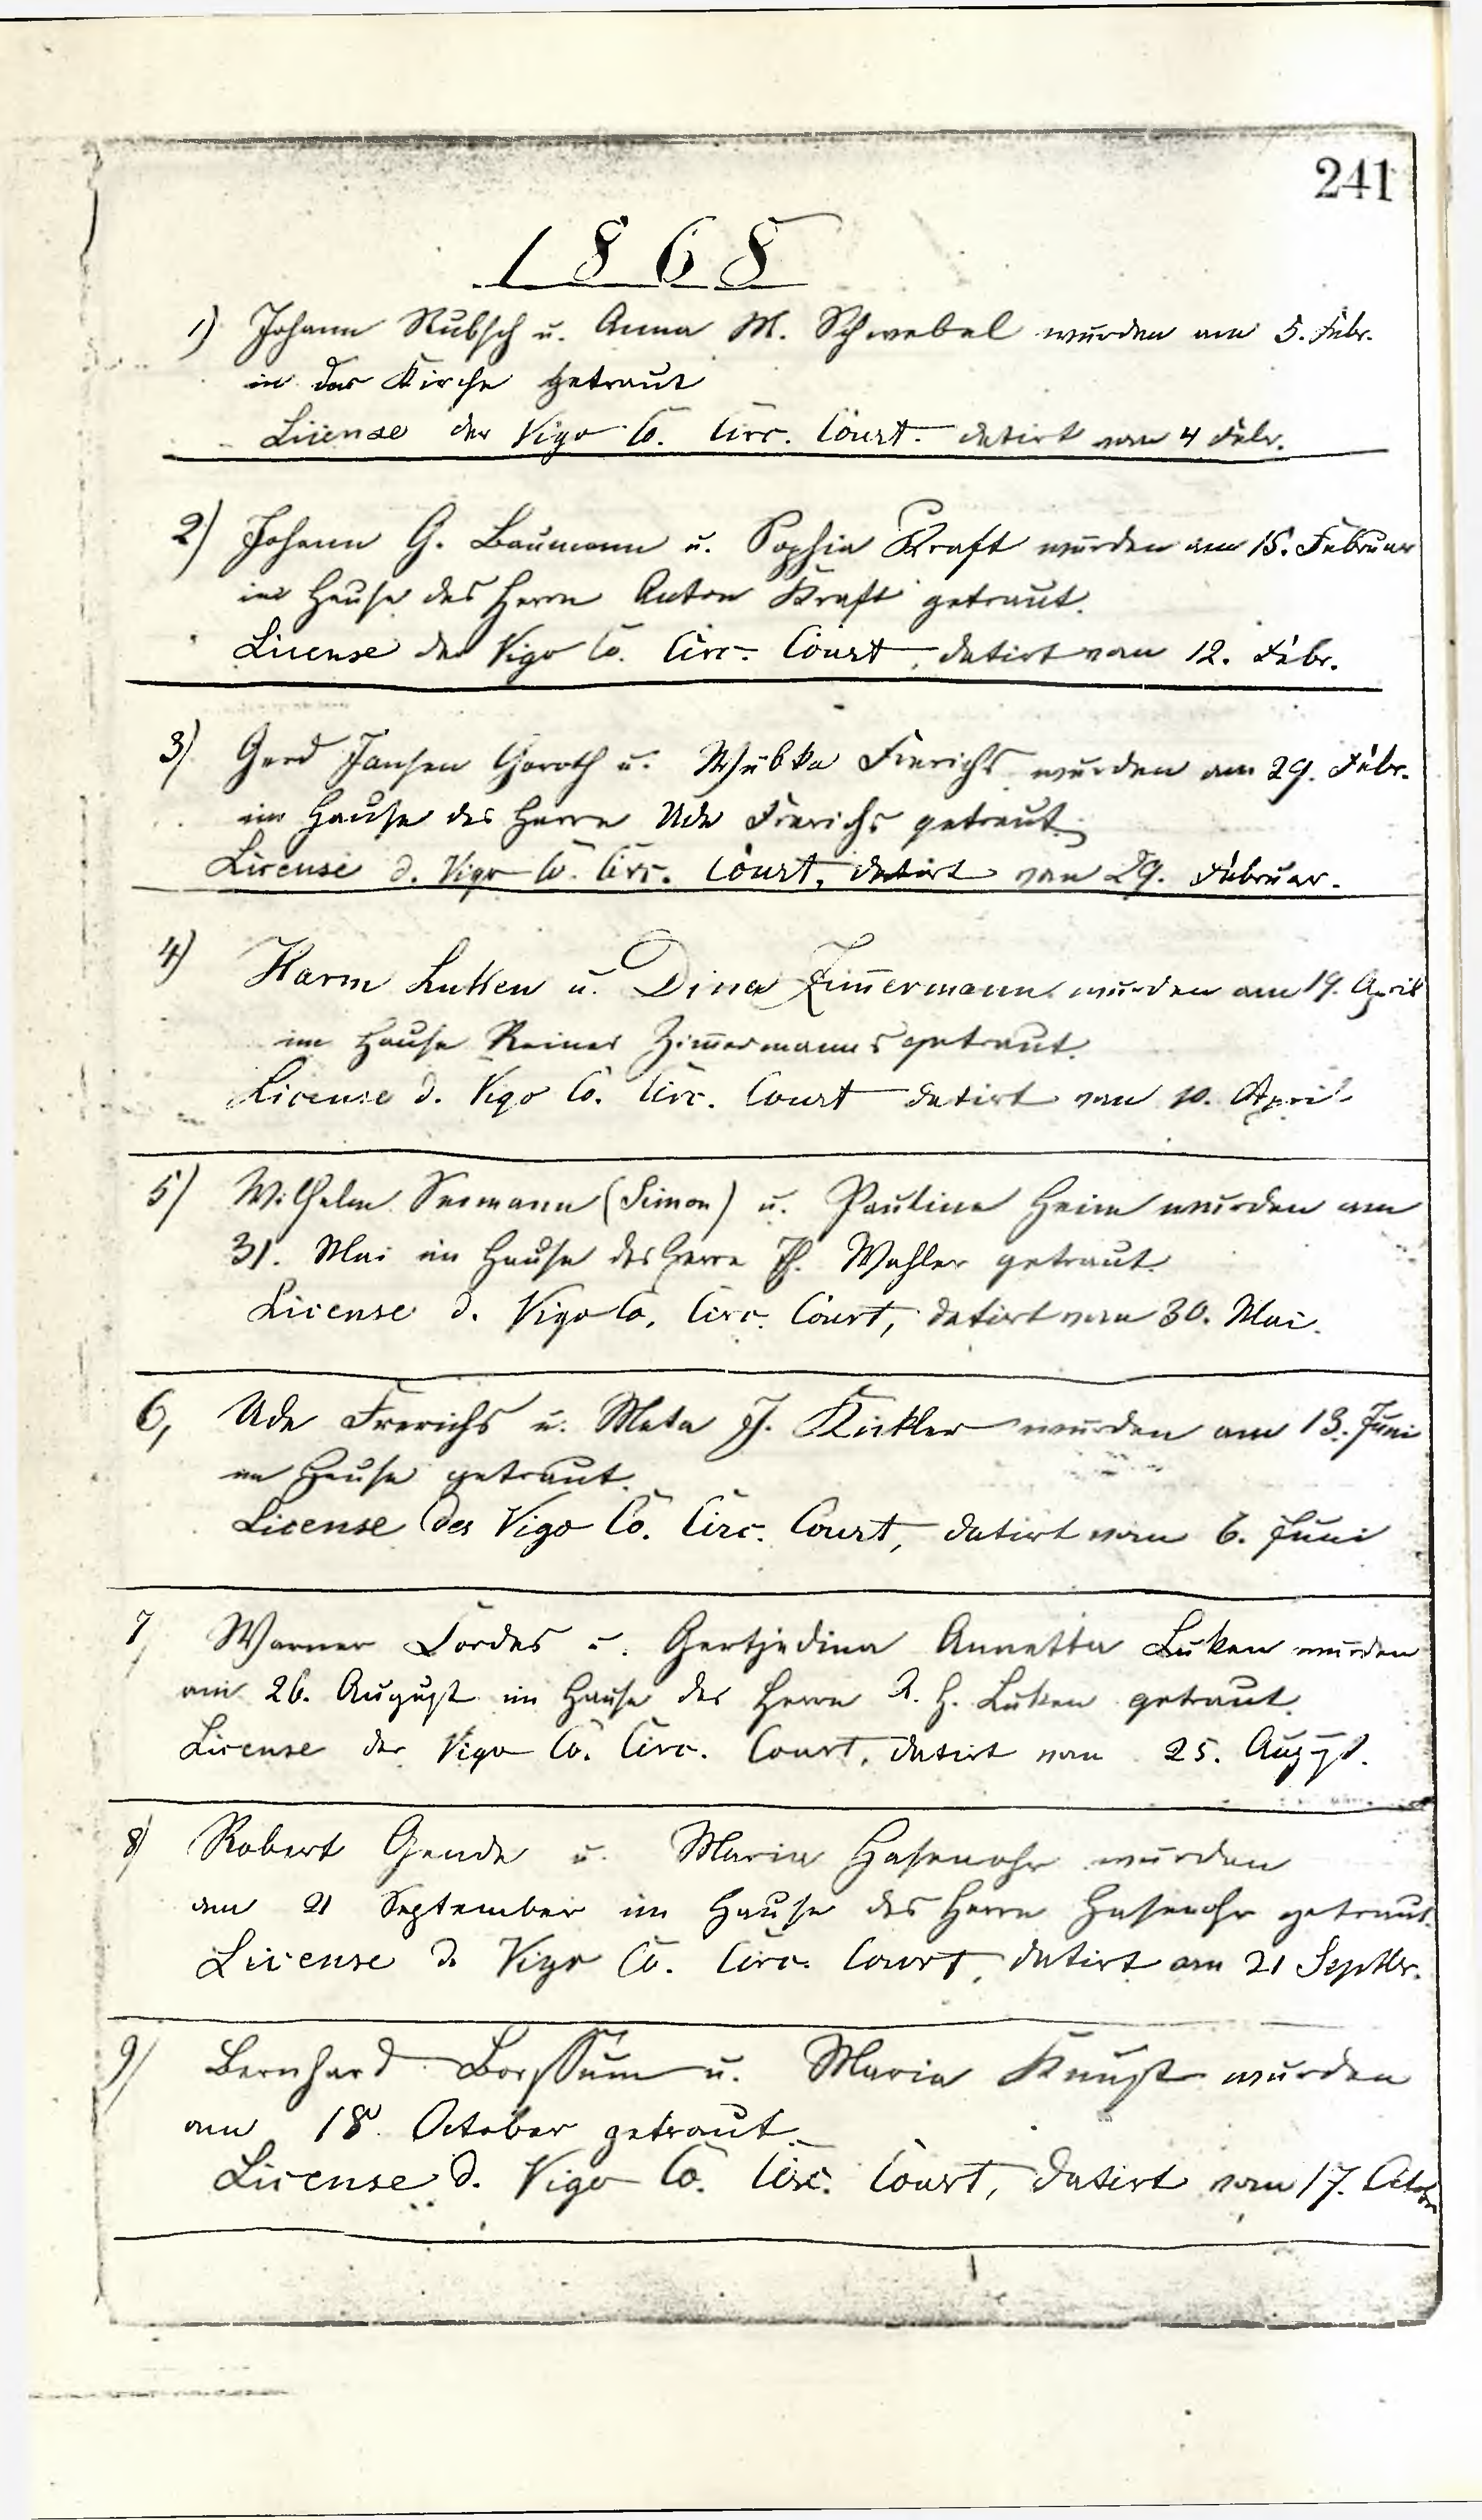 241
1868
1) Johann Rubsch u. Anna M. Schwebel wurden am 5. Febr.
in der Kirche getraut
License der Vigo Co. Circ. Court. datirt vom 4 Febr.
2) Johann G. Baumann u. Sophia Kraft wurden am 15. Februar
im Hause des Herrn Anton Kraft getraut.
License der Vigo Co. Circ. Court, datirt vom 12. Febr.
3) Gerd Jansen Goroth u. Wübke Frerichs wurden am 29. Febr.
im Hause des Herrn Ude Frerichs getraut.
License d. Vigo Co. Circ. Court, datirt vom 29. Februar.
4) Harm Lukken u. Dina Zim̄ermann wurden am 19. April
im Hause Reiner Zim̄ermanns getraut.
License d. Vigo Co. Circ. Court datirt vom 10. April
5) Wilhelm Seemann (Simon) u. Pauline Heim wurden am
31. Mai im Hause des Herrn Ph. Wahler getraut.
License d. Vigo Co. Circ. Court, datirt vom 30. Mai.
6, Ude Frerichs u. Meta J. Kickler wurden am 13. Juni
im Hause getraut.
License des Vigo Co. Circ. Court, datirt vom 6. Juni
7, Warner Cordes u. Gertjedina Annetta Luken wurden
am 26. August im Hause des Herrn R. H. Luken getraut.
License der Vigo Co. Circ. Court, datirt vom 25. August.
8) Robert Gende u. Maria Hasenohr wurden
am 21 September im Hause des Herrn Hasenohr getraut.
License d. Vigo Co. Circ. Court, datirt am 21 Septbr.
9) Bernhard Borssum u. Maria Kunst wurden
am 18. October getraut.
License d. Vigo Co. Circ. Court, datirt vom 17. Octobr